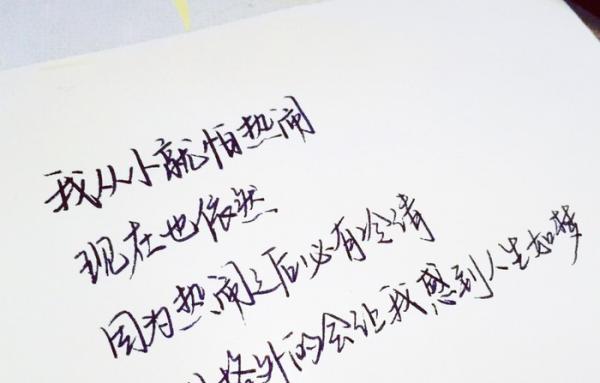 我从小就怕热闹
现在也依然
因为热闹之后必有冷清
格外的会让我感到人生如梦